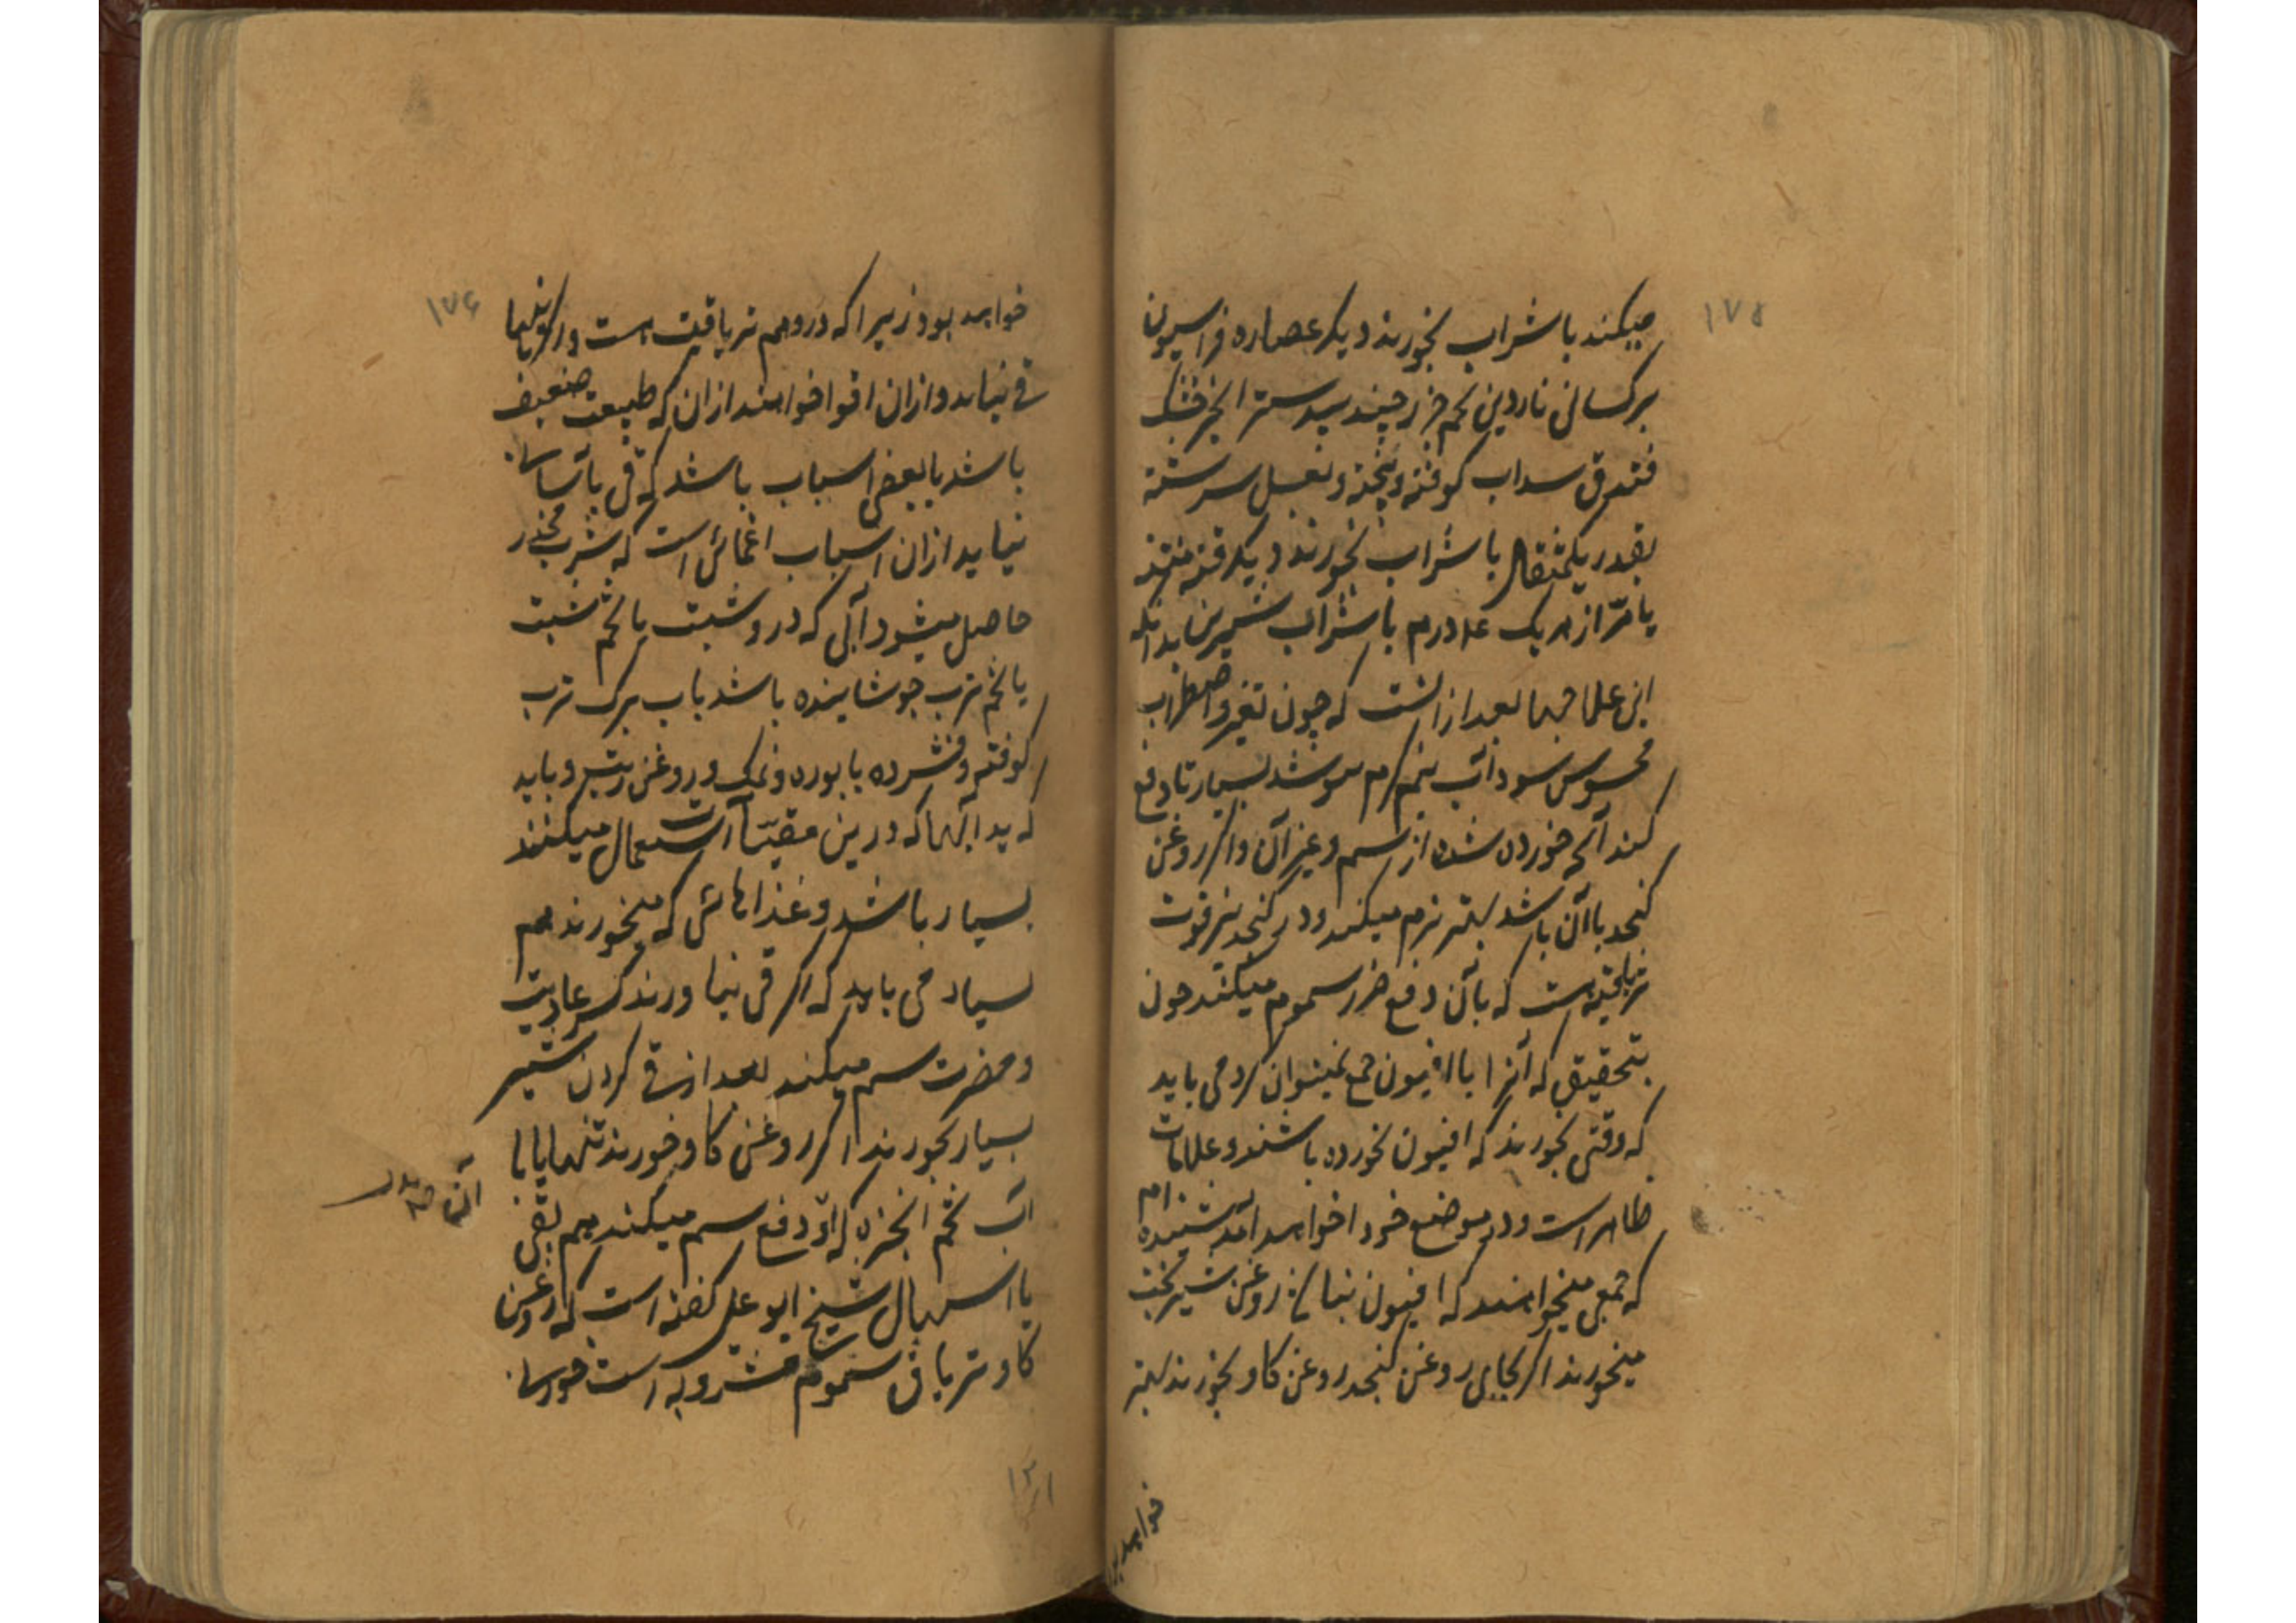 ۱۷۵
میکنند با شراب بخورند دیکر عصاره فراسیون
برکسانی ناردین تخم جزر جندبیدستر انجیر خشک
فندق سداب کوفته و بیخته و بعسل سرشته
بقدر یکمثقال با شراب بخورند دیکر قنه منتنه
یا مرّ از هریک ع‍ه درم با شراب شیرین بدانکه
این علاجها بعد از انست که چون تغیر و اضطراب
محسوس سود آب نیم کرم بنوشند بسیار تا دفع
کند آنچه خورده شده از سم و غیر آن و اکر روغن
کنجد با آن باشد بهتر نرم میکند و در کنجد نیز قوت
تریاقیه است که بآن دفع ضرر سموم میکند چون
بتحقیق که آنرا با افیون جمع نمیتوان کرد می باید
که وقتی بخورند که افیون نخورده باشند و علامات
ظاهر است و در موضع خود خواهد آمد شنیده ام
که جمعی میخواهند که افیون بنا روغن شیر بخت
میخورند اکر بجای روغن کنجد روغن کاو بخورند بهتر
خواهد بود
۱۷۶
خواهد بود زیرا که درو هم تریاقیت است و اکر باینها
قی نیاید و ازان اقوا خواهند ازان که طبیعت ضعیف
باشد یا بعضی اسباب باشد که قی بآسانی
نیاید ازان اسباب اغمائی است که بشرب مخدر
حاصل میشود آبی که درو شبت یا تخم شبت
یا تخم ترب جوشانیده باشد با آب برک ترب
کوفته و فشرده با بوره و نمک و روغن زیت و باید
که بد آبها که درین مقیّات استعمال میکنند
بسیار باشد و غذاهائی که میخورند هم
بسیار می باید که اکر قی نیاورند کسر عادیت
و مضرت سم میکند بعد از قی کردن شیر
بسیار بخورند اکر روغن کاو خورند تنها یا با
آب تخم انجره که او دفع سم میکند هم بقی
یا اسهال شیخ ابو علی کفته است که روغن
کاو تریاق سموم مشروبه است خورسانی
۱۳۱